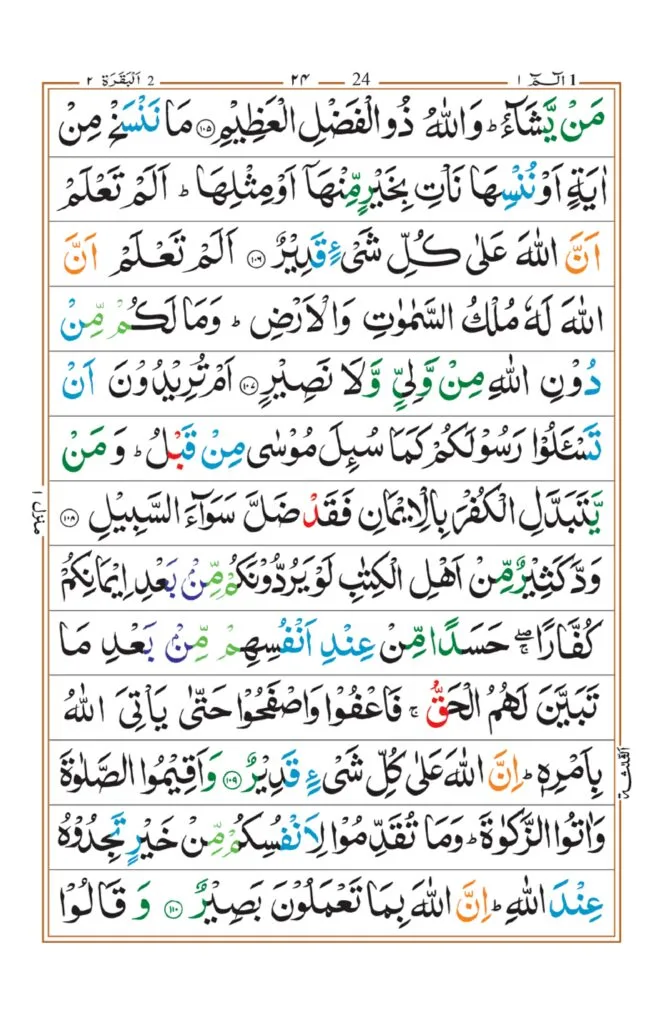 1 الٓمّٓ ١ 24 ٢٤ 2 اَلْبَقَرَة ٢
مَنْ یَّشَآءُ ؕ وَاللّٰهُ ذُو الْفَضْلِ الْعَظِیْمِ ۝۱۰۵ مَا نَنْسَخْ مِنْ
اٰیَةٍ اَوْ نُنْسِهَا نَاْتِ بِخَیْرٍ مِّنْهَاۤ اَوْ مِثْلِهَا ؕ اَلَمْ تَعْلَمْ
اَنَّ اللّٰهَ عَلٰی كُلِّ شَیْءٍ قَدِیْرٌ ۝۱۰۶ اَلَمْ تَعْلَمْ اَنَّ
اللّٰهَ لَهٗ مُلْكُ السَّمٰوٰتِ وَالْاَرْضِ ؕ وَمَا لَكُمْ مِّنْ
دُوْنِ اللّٰهِ مِنْ وَّلِیٍّ وَّلَا نَصِیْرٍ ۝۱۰۷ اَمْ تُرِیْدُوْنَ اَنْ
تَسْـَٔلُوْا رَسُوْلَكُمْ كَمَا سُىِٕلَ مُوْسٰی مِنْ قَبْلُ ؕ وَمَنْ
یَّتَبَدَّلِ الْكُفْرَ بِالْاِیْمَانِ فَقَدْ ضَلَّ سَوَآءَ السَّبِیْلِ ۝۱۰۸
وَدَّ كَثِیْرٌ مِّنْ اَهْلِ الْكِتٰبِ لَوْ یَرُدُّوْنَكُمْ مِّنْ بَعْدِ اِیْمَانِكُمْ
كُفَّارًا ۖۚ حَسَدًا مِّنْ عِنْدِ اَنْفُسِهِمْ مِّنْ بَعْدِ مَا
تَبَیَّنَ لَهُمُ الْحَقُّ ۚ فَاعْفُوْا وَاصْفَحُوْا حَتّٰی یَاْتِیَ اللّٰهُ
بِاَمْرِهٖ ؕ اِنَّ اللّٰهَ عَلٰی كُلِّ شَیْءٍ قَدِیْرٌ ۝۱۰۹ وَاَقِیْمُوا الصَّلٰوةَ
وَاٰتُوا الزَّكٰوةَ ؕ وَمَا تُقَدِّمُوْا لِاَنْفُسِكُمْ مِّنْ خَیْرٍ تَجِدُوْهُ
عِنْدَ اللّٰهِ ؕ اِنَّ اللّٰهَ بِمَا تَعْمَلُوْنَ بَصِیْرٌ ۝۱۱۰ وَقَالُوْا
منزل ١
الثلٰثة